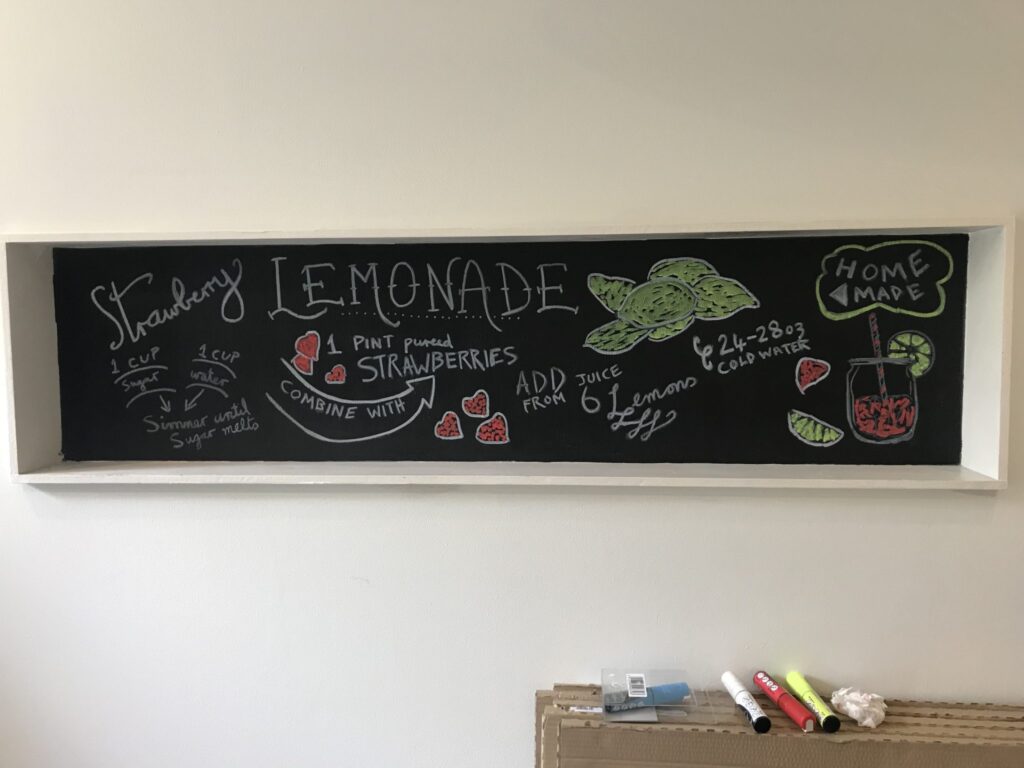 Strawberry LEMONADE
1 CUP
Sugar
1 CUP
water
Simmer until
Sugar melts
COMBINE WITH
1 PINT pureed
STRAWBERRIES
ADD
FROM
JUICE
6 Lemons
& 24-28oz
COLD WATER
HOME
MADE